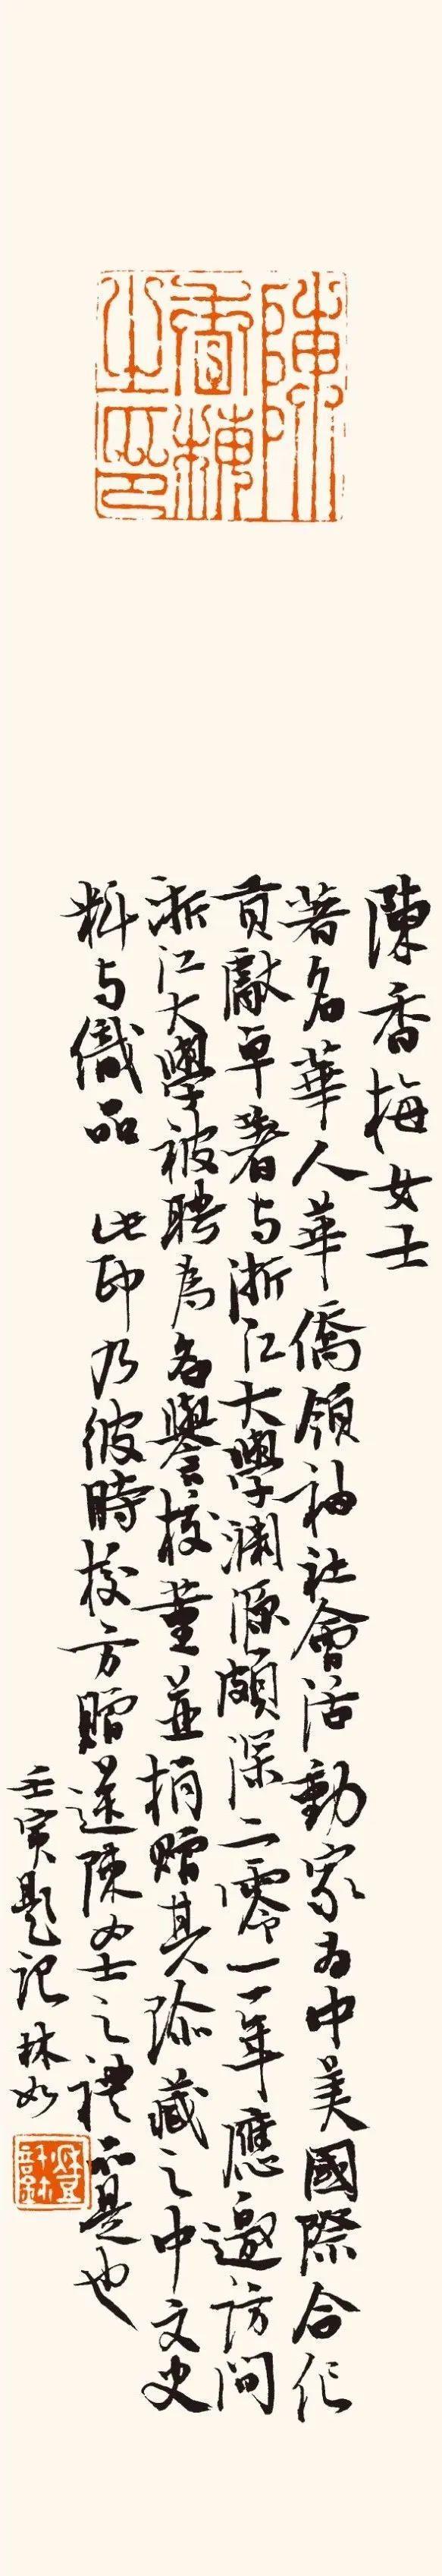 陳
香梅
之印
陳香梅女士
著名華人華僑領袖社會活動家为中美國際合作
貢獻卓著与浙江大學淵源頗深二零一一年應邀訪問
浙江大學被聘為名譽校董並捐贈其珍藏之中文史
料与品 此印乃彼時校方贈送陳女士之禮品是也
壬寅題記林如